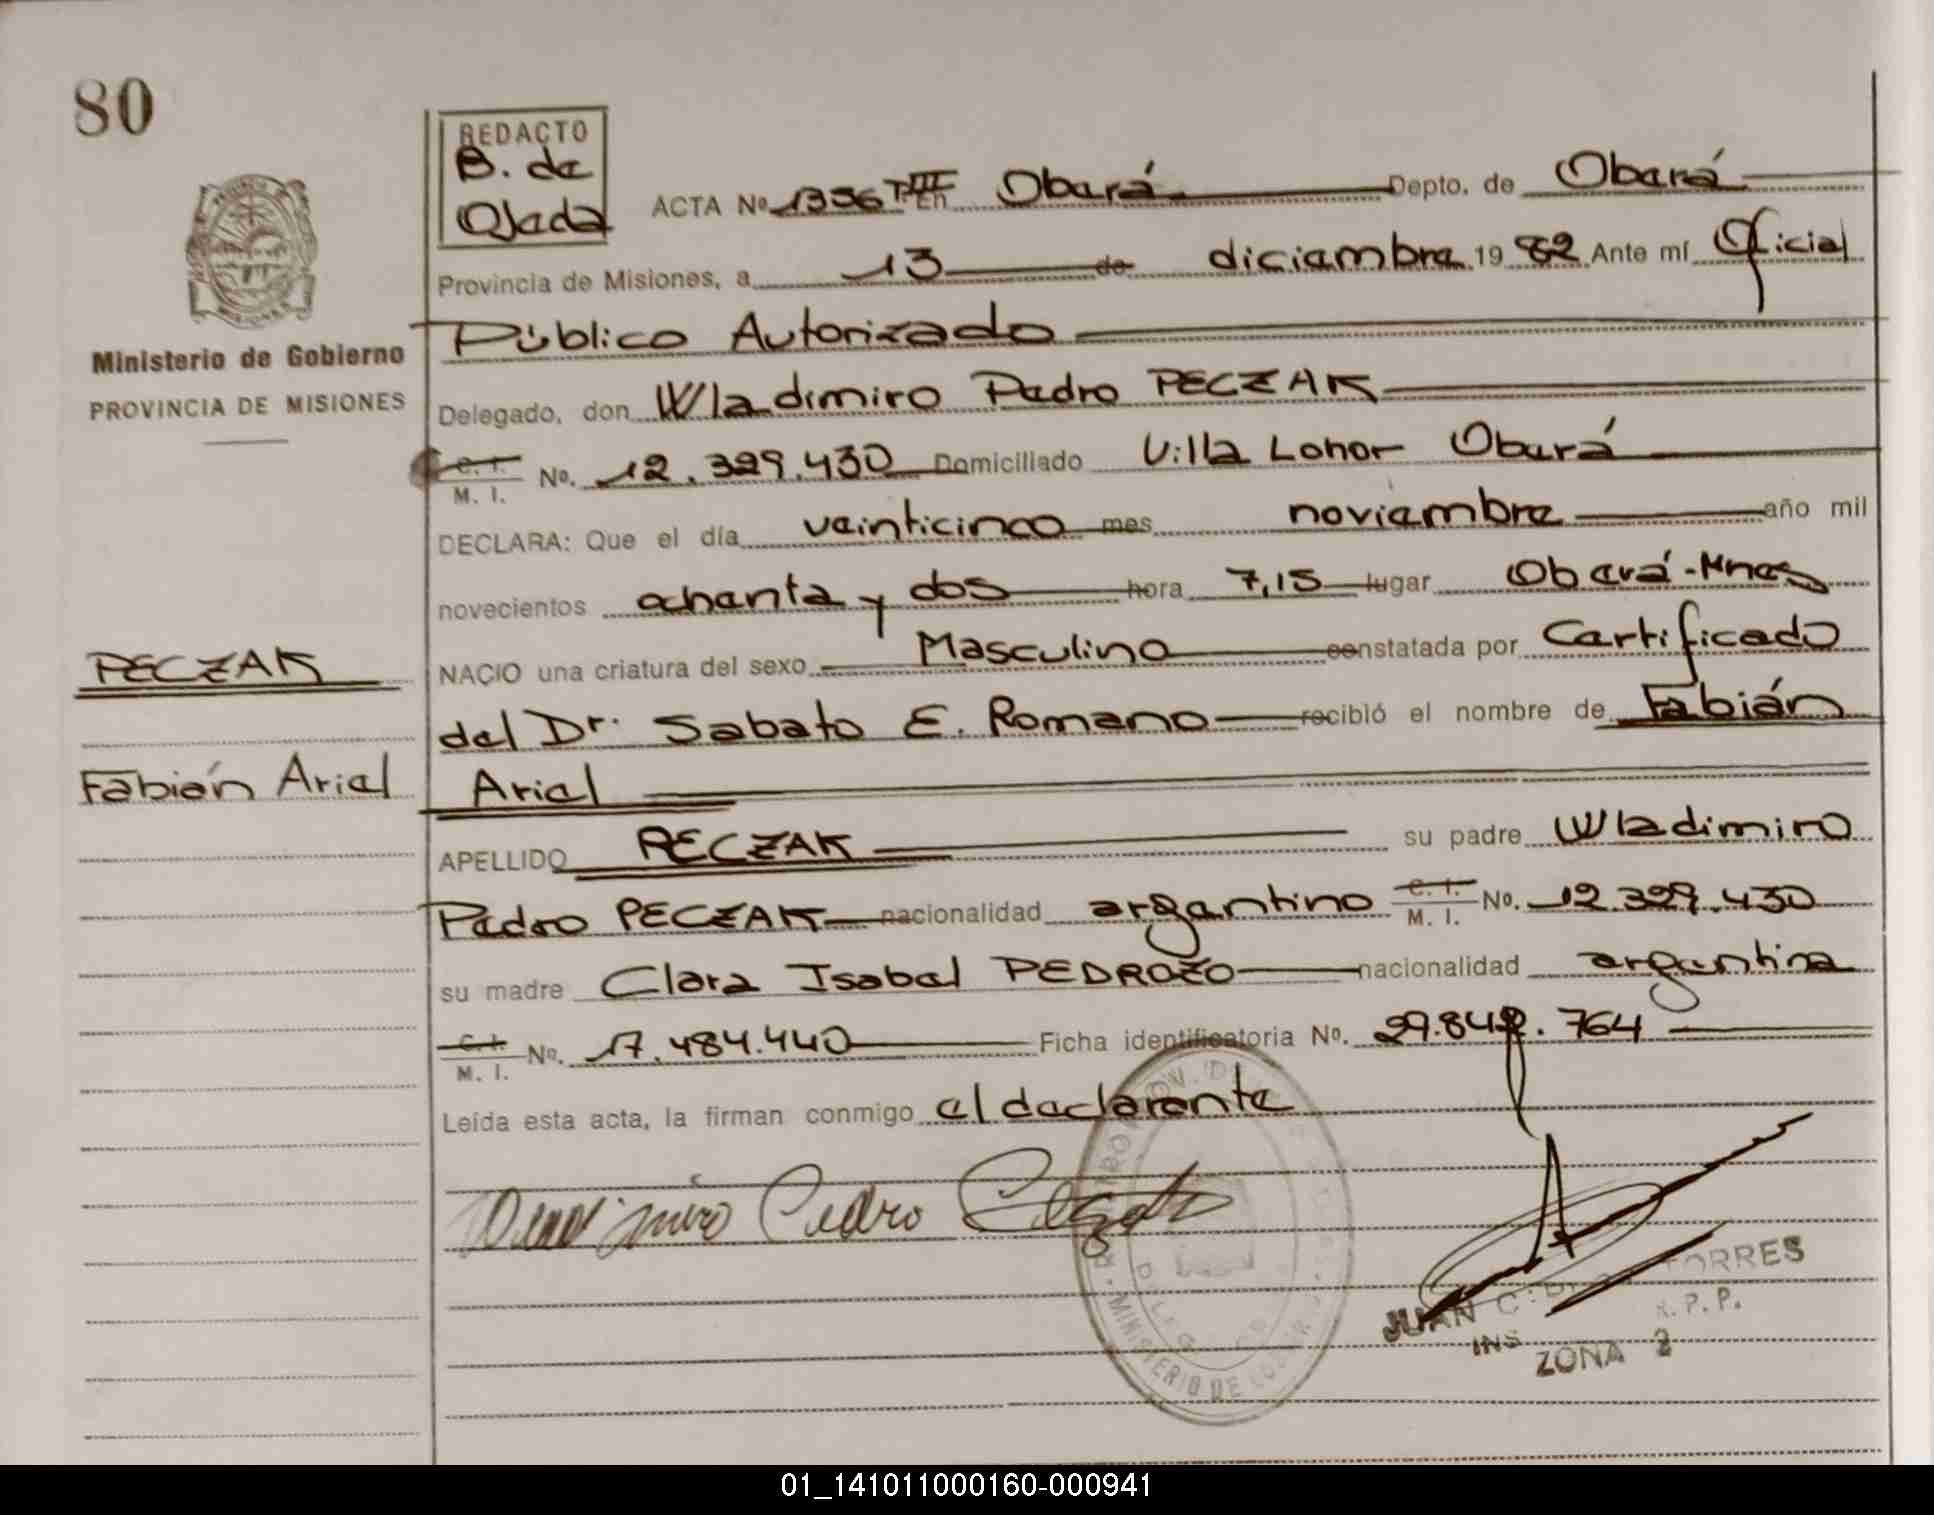 80
REDACTO
B. de
Ojeda
ACTA Nº 1356 TºIII En Oberá Depto. de Oberá
Provincia de Misiones, a 13 de diciembre 19 82 Ante mí Oficial
Público Autorizado
Ministerio de Gobierno
PROVINCIA DE MISIONES
Delegado, don Wladimiro Pedro PECZAK
C. I.
M. I. Nº. 12.329.430 Domiciliado Villa Lohor Oberá
DECLARA: Que el día veinticinco mes noviembre año mil
novecientos ochenta y dos hora 7,15 lugar Oberá-Mnes
PECZAK
NACIO una criatura del sexo Masculino constatada por Certificado
del Dr. Sabato E. Romano recibió el nombre de Fabián
Fabián Ariel
Ariel
APELLIDO PECZAK su padre Wladimiro
Pedro PECZAK nacionalidad argentino C. I. M. I. Nº. 12.329.430
su madre Clara Isabel PEDROZO nacionalidad argentina
C. I.
M. I. Nº. 17.484.440 Ficha identificatoria Nº. 29.842.764
Leída esta acta, la firman conmigo el declarante
Pedro
JUAN TORRES
INS R. P. P.
ZONA 2
MINISTERIO DE
01_141011000160-000941